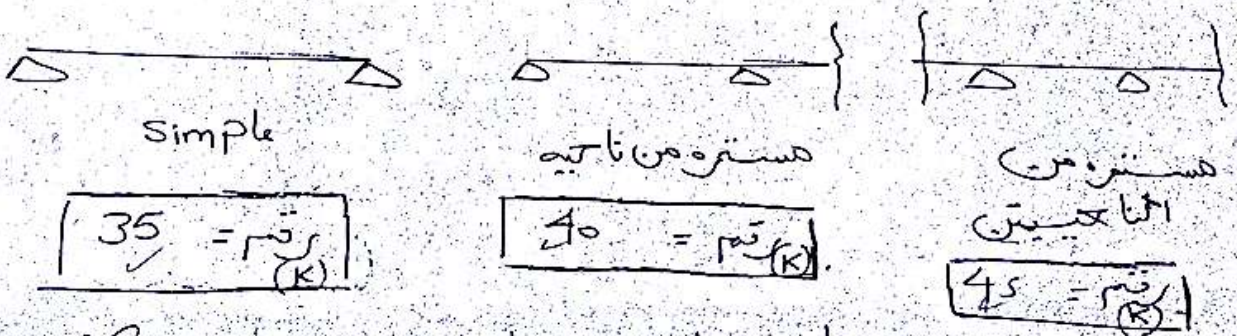 simple
رقم (K) = 35
مستمره من ناحيه
رقم (K) = 40
مستمره من
الناحيتين
رقم (K) = 45